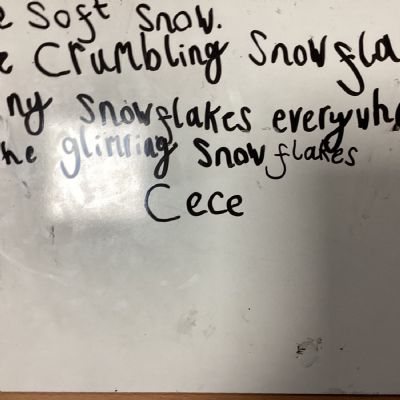 e Soft Snow.
e Crumbling Snowfla
ny Snowflakes everywh
he glimring Snowflakes
Cece